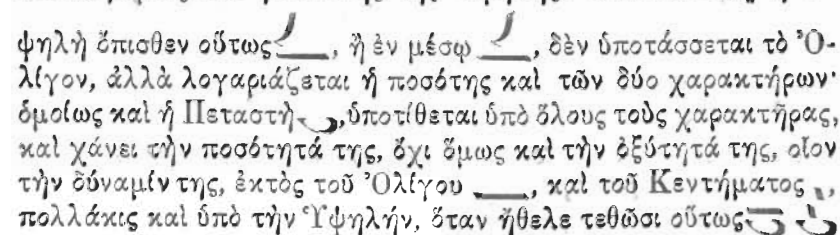 ψηλὴ ὄπισθεν οὕτως , ἢ ἐν μέσῳ , δὲν ὑποτάσσεται τὸ Ὀ-
λίγον, ἀλλὰ λογαριάζεται ἡ ποσότης καὶ τῶν δύο χαρακτήρων·
ὁμοίως καὶ ἡ Πεταστὴ , ὑποτίθεται ὑπὸ ὅλους τοὺς χαρακτῆρας,
καὶ χάνει τὴν ποσότητά της, ὄχι ὅμως καὶ τὴν ὀξύτητά της, οἷον
τὴν δύναμίν της, ἐκτὸς τοῦ Ὀλίγου , καὶ τοῦ Κεντήματος ,
πολλάκις καὶ ὑπὸ τὴν Ὑψηλήν, ὅταν ἤθελε τεθῶσι οὕτως